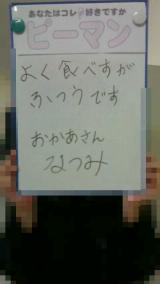 あなたはコレ好きですか
ピーマン
よく食べすが
ふつうです
おかあさん
なつみ